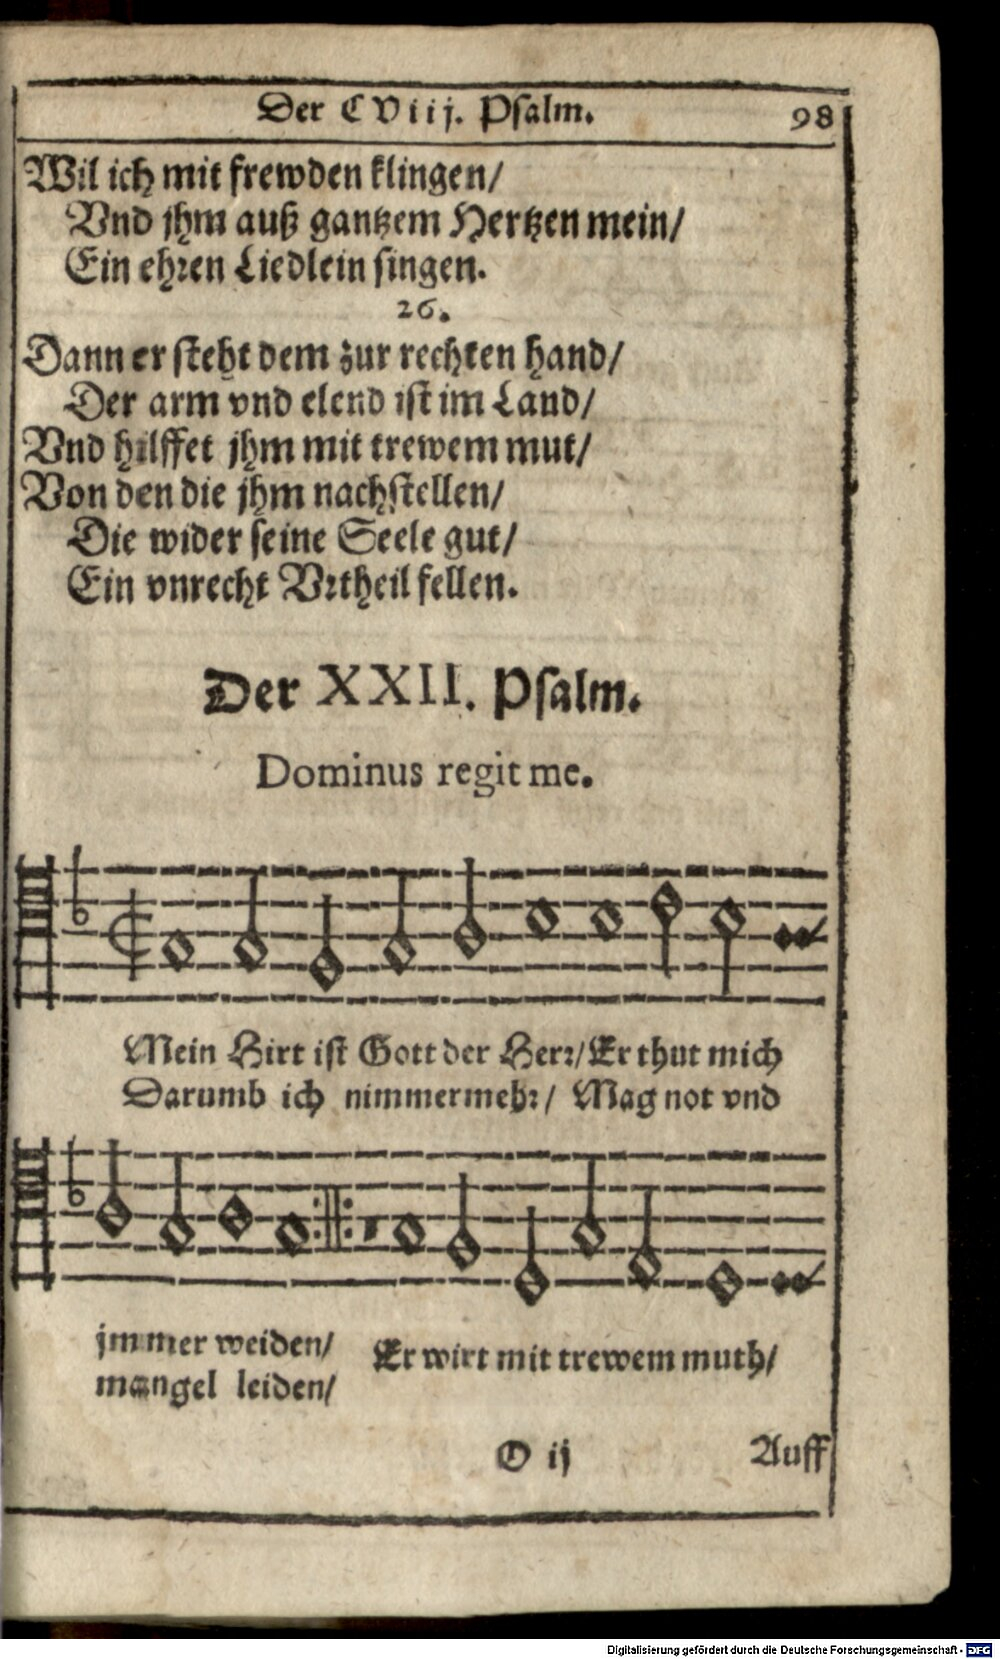 Der CViij. Psalm. 98
Wil ich mit frewden klingen/
Vnd jhm auß gantzem Hertzen mein/
Ein ehren Liedlein singen.
26.
Dann er steht dem zur rechten hand/
Der arm vnd elend ist im Land/
Vnd hilffet jhm mit trewem mut/
Von den die jhm nachstellen/
Die wider seine Seele gut/
Ein vnrecht Vrtheil fellen.
Der XXII. Psalm.
Dominus regit me.
Mein Hirt ist Gott der Herr/ Er thut mich
Darumb ich nimmermehr/ Mag not vnd
jmmer weiden/ Er wirt mit trewem muth/
mangel leiden/
O ij Auff
Digitalisierung gefördert durch die Deutsche Forschungsgemeinschaft - DFG